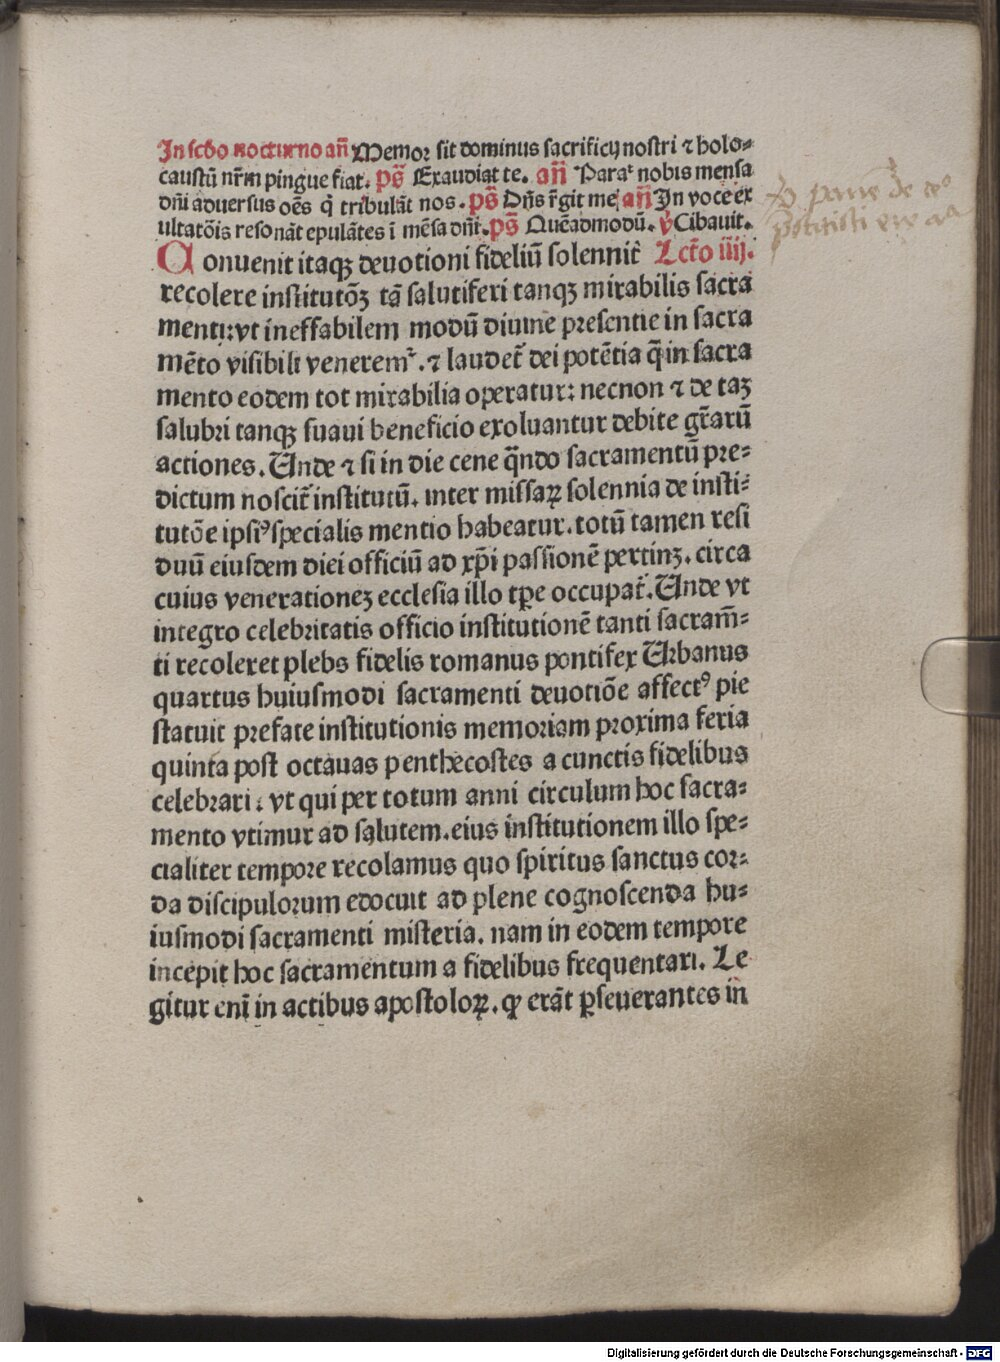 In scḋo nocturno añ Memor sit dominus sacrificij nostri ⁊ holo⸗
caustū nr̄m pingue fiat. ps̄ Exaudiat te. añ Parat᷑ nobis mensa
dn̄i aduersus oēs q̇ tribulāt nos. ps̄ Dn̄s r̄git me añ In voce ex
ultatōis resonāt epulātes ī mēsa dn̄i. ps̄ Quēadmodū. ℣ Cibauit.
Conuenit itaqꝫ deuotioni fideliū solennit᷑ Lct̄o iiij.
recolere institutōꝫ tā salutiferi tanqꝫ mirabilis sacra
menti: vt ineffabilem modū diuine presentie in sacra
mēto visibili venerem᷑. ⁊ laudet᷑ dei potētia q̄ in sacra
mento eodem tot mirabilia operatur: necnon ⁊ de taꝫ
salubri tanqꝫ suaui beneficio exoluantur debite gr̄arū
actiones. Unde ⁊ si in die cene qn̄do sacramentū pre⸗
dictum noscit᷑ institutū. inter missaꝝ solennia de insti⸗
tutōe ipsiꝰ specialis mentio habeatur. totū tamen resi
duū eiusdem diei officiū ad xp̄i passionē pertinꝫ. circa
cuius venerationeꝫ ecclesia illo tꝑe occupat᷑. Unde vt
integro celebritatis officio institutionē tanti sacram̄⸗
ti recoleret plebs fidelis romanus pontifex Urbanus
quartus huiusmodi sacramenti deuotiōe affectꝰ pie
statuit prefate institutionis memoriam proxima feria
quinta post octauas penthecostes a cunctis fidelibus
celebrari: vt qui per totum anni circulum hoc sacra⸗
mento vtimur ad salutem. eius institutionem illo spe⸗
cialiter tempore recolamus quo spiritus sanctus cor⸗
da discipulorum edocuit ad plene cognoscenda hu⸗
iusmodi sacramenti misteria. nam in eodem tempore
incepit hoc sacramentum a fidelibus frequentari. Le
gitur enī in actibus apostoloꝝ. ꝙ erāt ꝑseuerantes in
Digitalisierung gefördert durch die Deutsche Forschungsgemeinschaft - DFG